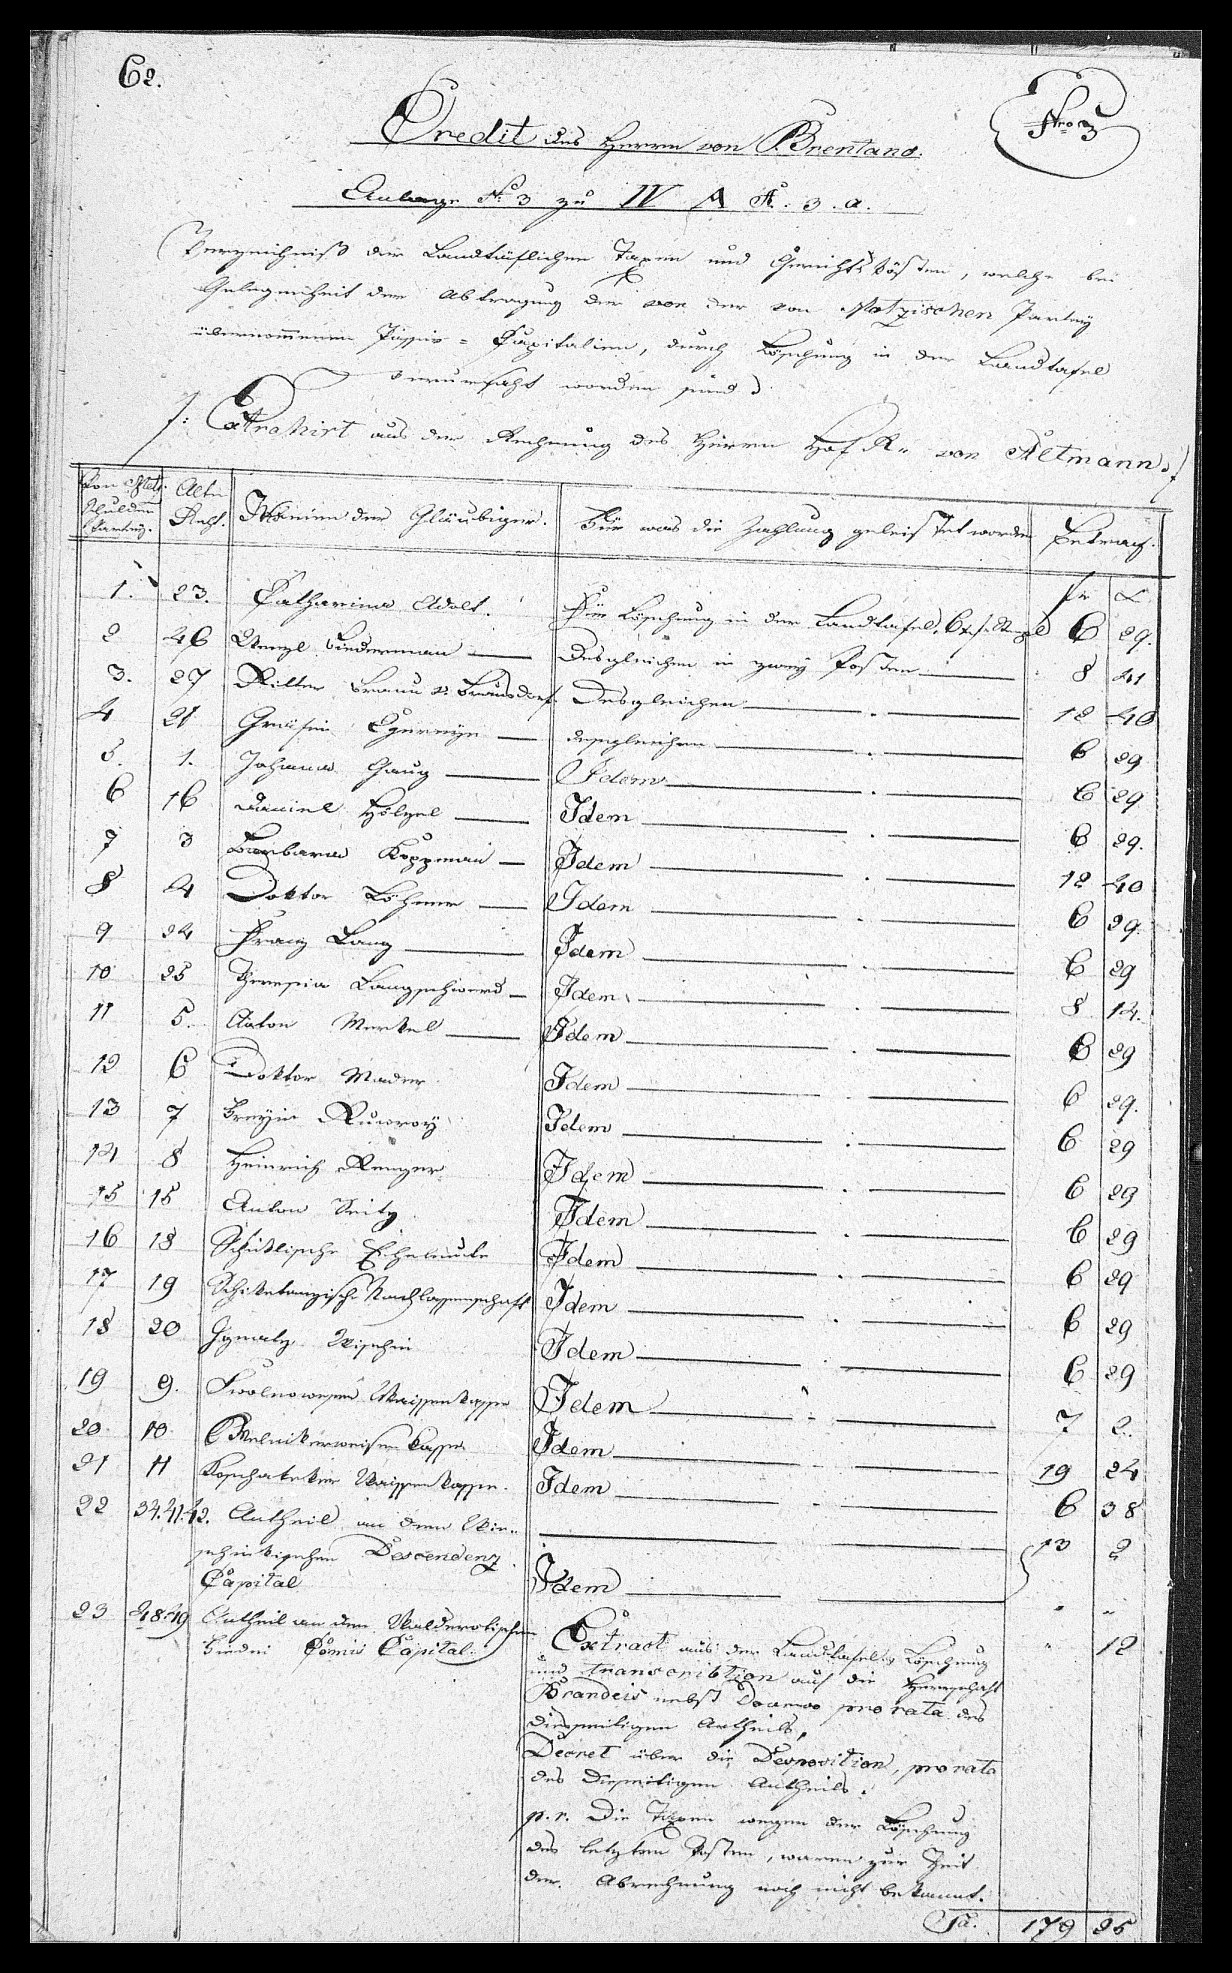 62.
Nro 3
Credit des Herrn von Brentano.
Anlage No. 3 zu IV A No. 3. a.
Verzeichniß der Landtäflichen Taxen und Gerichtskösten, welche bei
Gelegenheit der Abtragung der von der von Motzischen Partey
übernommenen Passiv = Capitalien, durch Löschung in der Landtafel
verursacht worden sind
/: Extrahirt aus der Rechnung des Herrn Hof R. von Altmann :/
Von Schulden Partey. Alte Rech. Namen der Gläubiger. Für was die Zahlung geleistet worden Betrag.
fr x
1. 23. Catharina Adolt. Für Löschung in der Landtafel 6 29.
2 46 Wenzl Biederman Desgleichen in zwey Posten 8 41
3. 27 Ritter Braun v. Braunsdorf Desgleichen 12 40
4 21 Gräfin desgleichen 6 29
5. 1. Johanna Gaug Idem 6 29
6 16 Daniel Hölzel Idem 6 29.
7 3 Barbara Koppman Idem 12 40
8 4 Doktor Löhner Idem 6 29.
9 24 Franz Lang Idem 6 29
10 25 Theresia Langschwerd Idem 8 14.
11 5. Anton Merkel Idem 6 29
12 6 Doktor Mader Idem 6 29.
13 7 Freyin Idem 6 29
14 8 Heinrich Renger Idem 6 29
15 15 Anton Seitz Idem 6 29
16 18 Eheleute Idem 6 29
17 19 Schiketanzische Nachlassenschaft Idem 6 29
18 20 Ignatz Idem 6 29
19 9. Waissenkasse Idem 7 2.
20 10 Melnikerweisen Kasse Idem 19 24
21 11 Koschateker Waissenkasse. Idem 6 38
22 34. 41. 42. Antheil an dem 13 2
Descendenz
Capital Idem " "
23 Antheil an dem Walderotischen Extract aus der Landtafel, Löschung " 12
Capital. und transcribtion auf die Herrschaft
Brandeis nebst pro rata des
diesseitigen Antheils,
Decret über die Deposition, pro rata
des diesseitigen Antheils.
p. r. Die Taxen wegen der Löschung
des letzten Posten, waren zur Zeit
der Abrechnung noch nicht bekannt.
Sa. 179 25